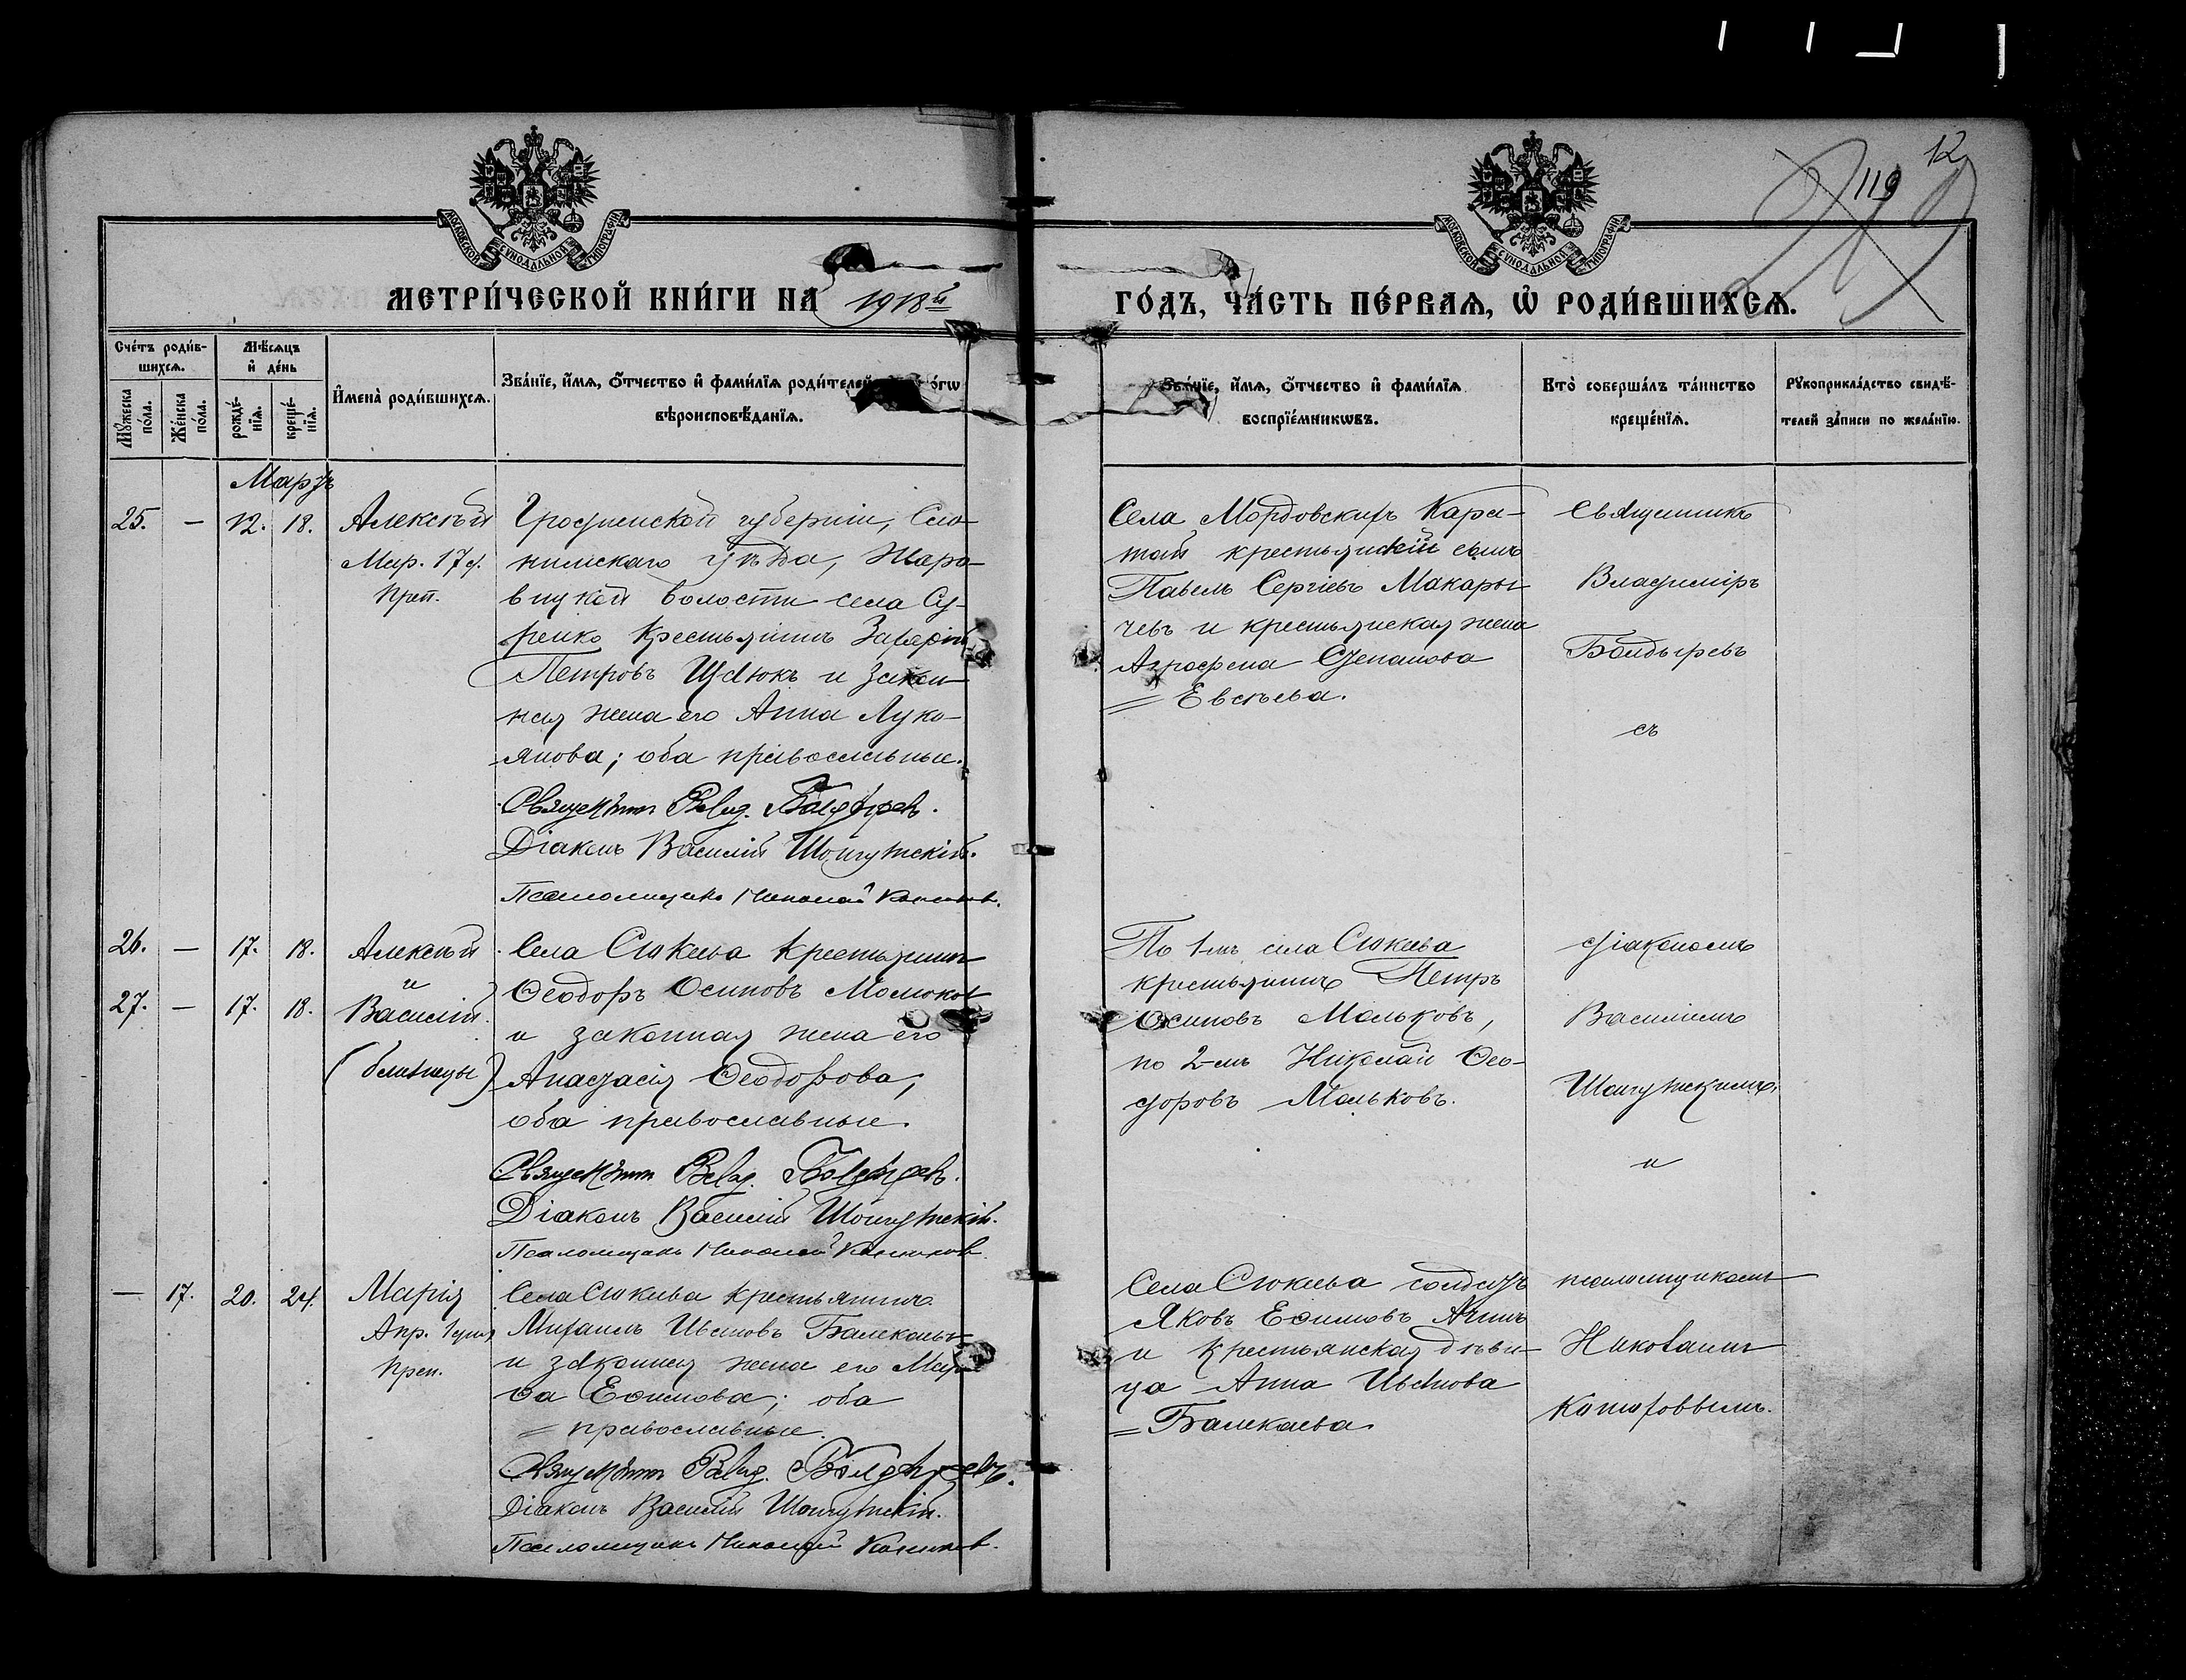 12
119
МОСКОВСКОЙ СѴНОДАЛЬНОЙ ТИПОГРАФІИ
МОСКОВСКОЙ СѴНОДАЛЬНОЙ ТИПОГРАФІИ
МЕТРИ́ЧЕСКОЙ КНИ́ГИ НА 1918й ГО́ДЪ, ЧА́СТЬ ПЕ́РВАѦ, Ѡ҆ РОДИ́ВШИХСѦ.
Сче́тъ роди́в-
шихсѧ.
Мѣ́сѧцъ
и҆ де́нь
Мꙋ́жеска
по́ла.
Же́нска
по́ла.
рожде́-
нїѧ.
креще́-
нїѧ.
И҆мена̀ роди́вшихсѧ.
Зва́нїе, и҆́мѧ, ѻ҆́тчество и҆ фами́лїѧ роди́телей
вѣроисповѣ́данїѧ.
Зва́нїе, и҆́мѧ, ѻ҆́тчество и҆ фами́лїѧ
воспрїе́мникѡвъ.
Кто̀ соверша́лъ та́инство
креще́нїѧ.
Рꙋкоприкла́дство свидѣ́-
телей за́писи по жела́нїю.
Мартъ
25. — 12. 18. Алексѣй
Мар. 17 д.
Преп.
Гродненской губерніи, Сло-
нимскаго уѣзда,
волости села Су-
крестьянинъ Захарій
Петровъ и закон-
ная жена его Анна Лукь-
янова; оба православные.
Священникъ Влад. Болдыревъ.
Діаконъ Василій Шонгутскій.
Псаломщикъ Николай
Села Мордовскихъ Кара-
тай крестьянскій сынъ
Павелъ Сергіевъ Макары-
чевъ и крестьянская жена
Агрофена Степанова
= Евсѣева.
Священникъ
Владиміръ
Болдыревъ
съ
26. — 17. 18. Алексѣй
и
27. — 17. 18. Василій
(близнецы)
Села Сюкеева крестьянинъ
Ѳеодоръ Осиповъ Мольков
и законная жена его
Анастасія Ѳеодорова,
оба православные.
Священникъ Влад. Болдыревъ.
Діаконъ Василій Шонгутскій.
Псаломщикъ Николай
По 1-мъ села Сюкеева
крестьянинъ Петръ
Осиповъ Мольковъ,
по 2-мъ Николай Ѳео-
доровъ Мольковъ.
діакономъ
Василіемъ
Шонгутскимъ,
и
— 17. 20. 24. Марія
Апр. 1 дня
Преп.
Села Сюкеева крестьянинъ
Михаилъ Ивановъ Балекаевъ
и законная жена его Мар-
ѳа Еѳимова; оба
= православные.
Священникъ Влад. Болдыревъ.
Діаконъ Василій Шонгутскій.
Псаломщикъ Николай
Села Сюкеева солдатъ
Яковъ Еѳимовъ
и крестьянская дѣви-
ца Анна Иванова
= Балекаева.
псаломщикомъ
Николаемъ